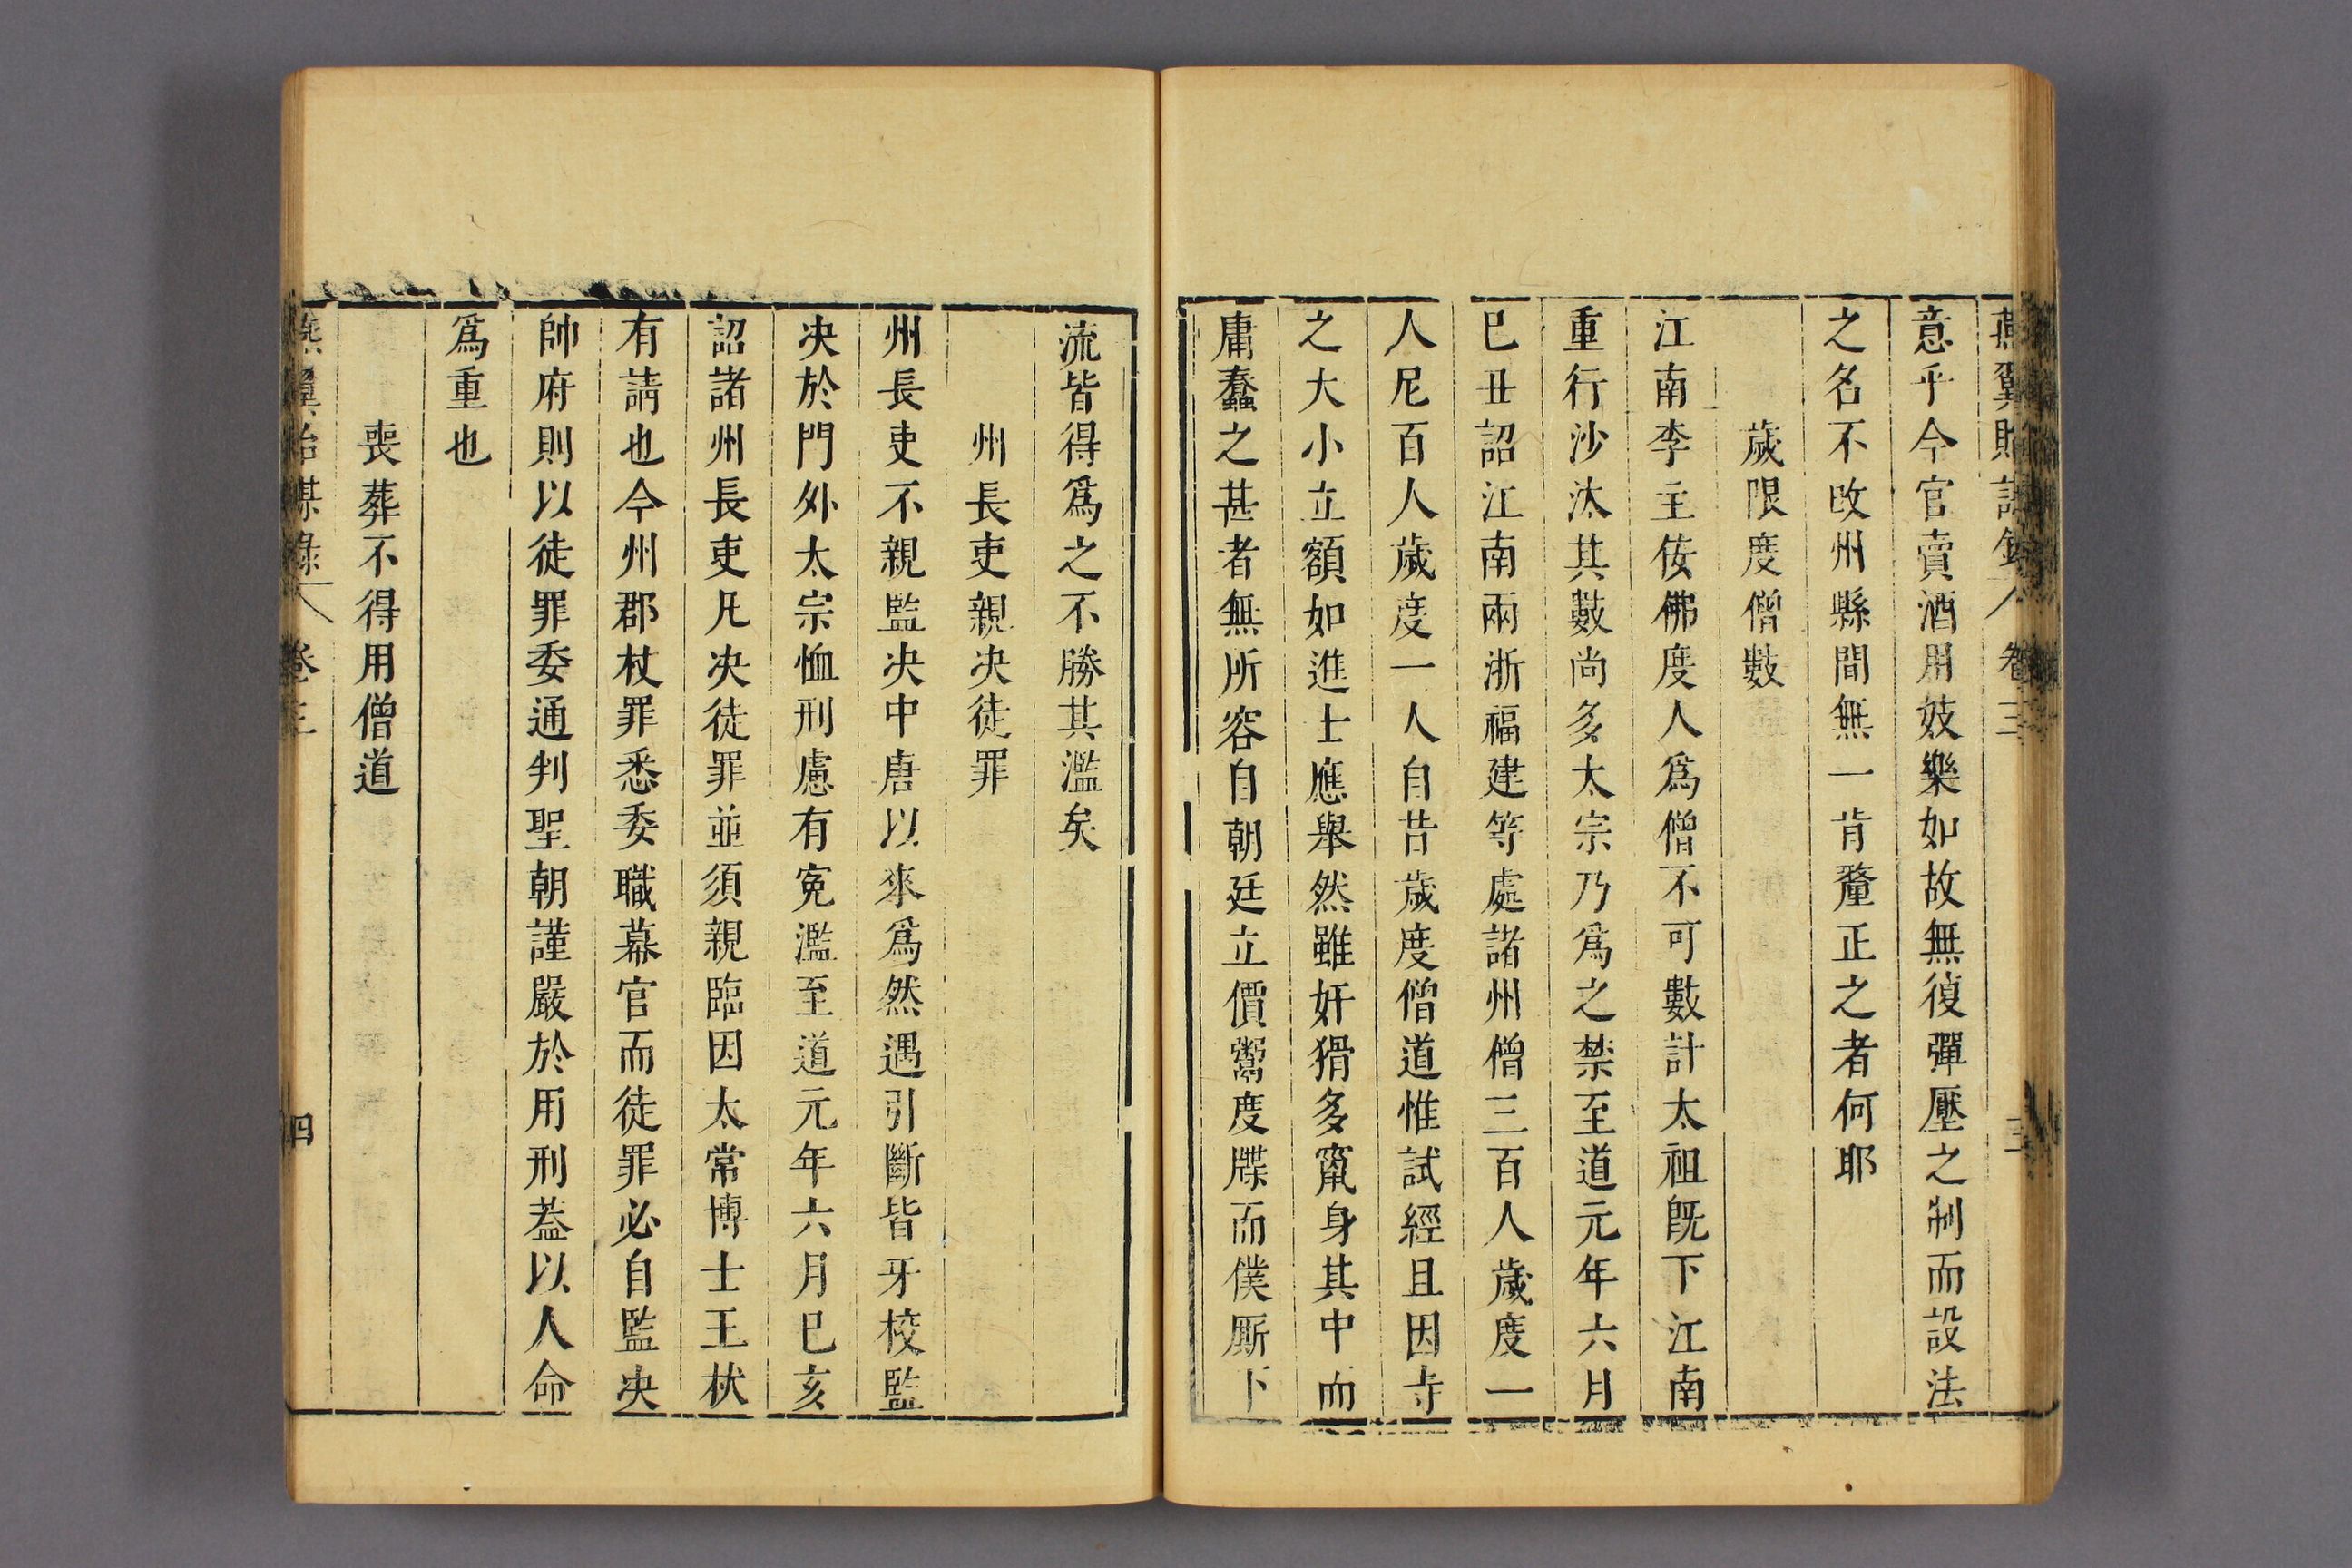 燕翼貽謀錄 卷三 三
意乎今官賣酒用妓樂如故無復彈壓之制而設法
之名不改州縣間無一肯釐正之者何耶
歲限度僧數
江南李主佞佛度人爲僧不可數計太祖旣下江南
重行沙汰其數尚多太宗乃爲之禁至道元年六月
巳丑詔江南兩浙福建等處諸州僧三百人歲度一
人尼百人歲度一人自昔歲度僧道惟試經且因寺
之大小立額如進士應舉然雖奸猾多竄身其中而
庸蠢之甚者無所容自朝廷立價鬻度牒而僕厮下
流皆得爲之不勝其濫矣
州長吏親决徒罪
州長吏不親監决中唐以來爲然遇引斷皆牙校監
决於門外太宗恤刑慮有寃濫至道元年六月巳亥
詔諸州長吏凡决徒罪並須親臨因太常博士王杕
有請也今州郡杖罪悉委職幕官而徒罪必自監决
帥府則以徒罪委通判聖朝謹嚴於用刑葢以人命
爲重也
喪葬不得用僧道
燕翼詒謀錄 卷三 四